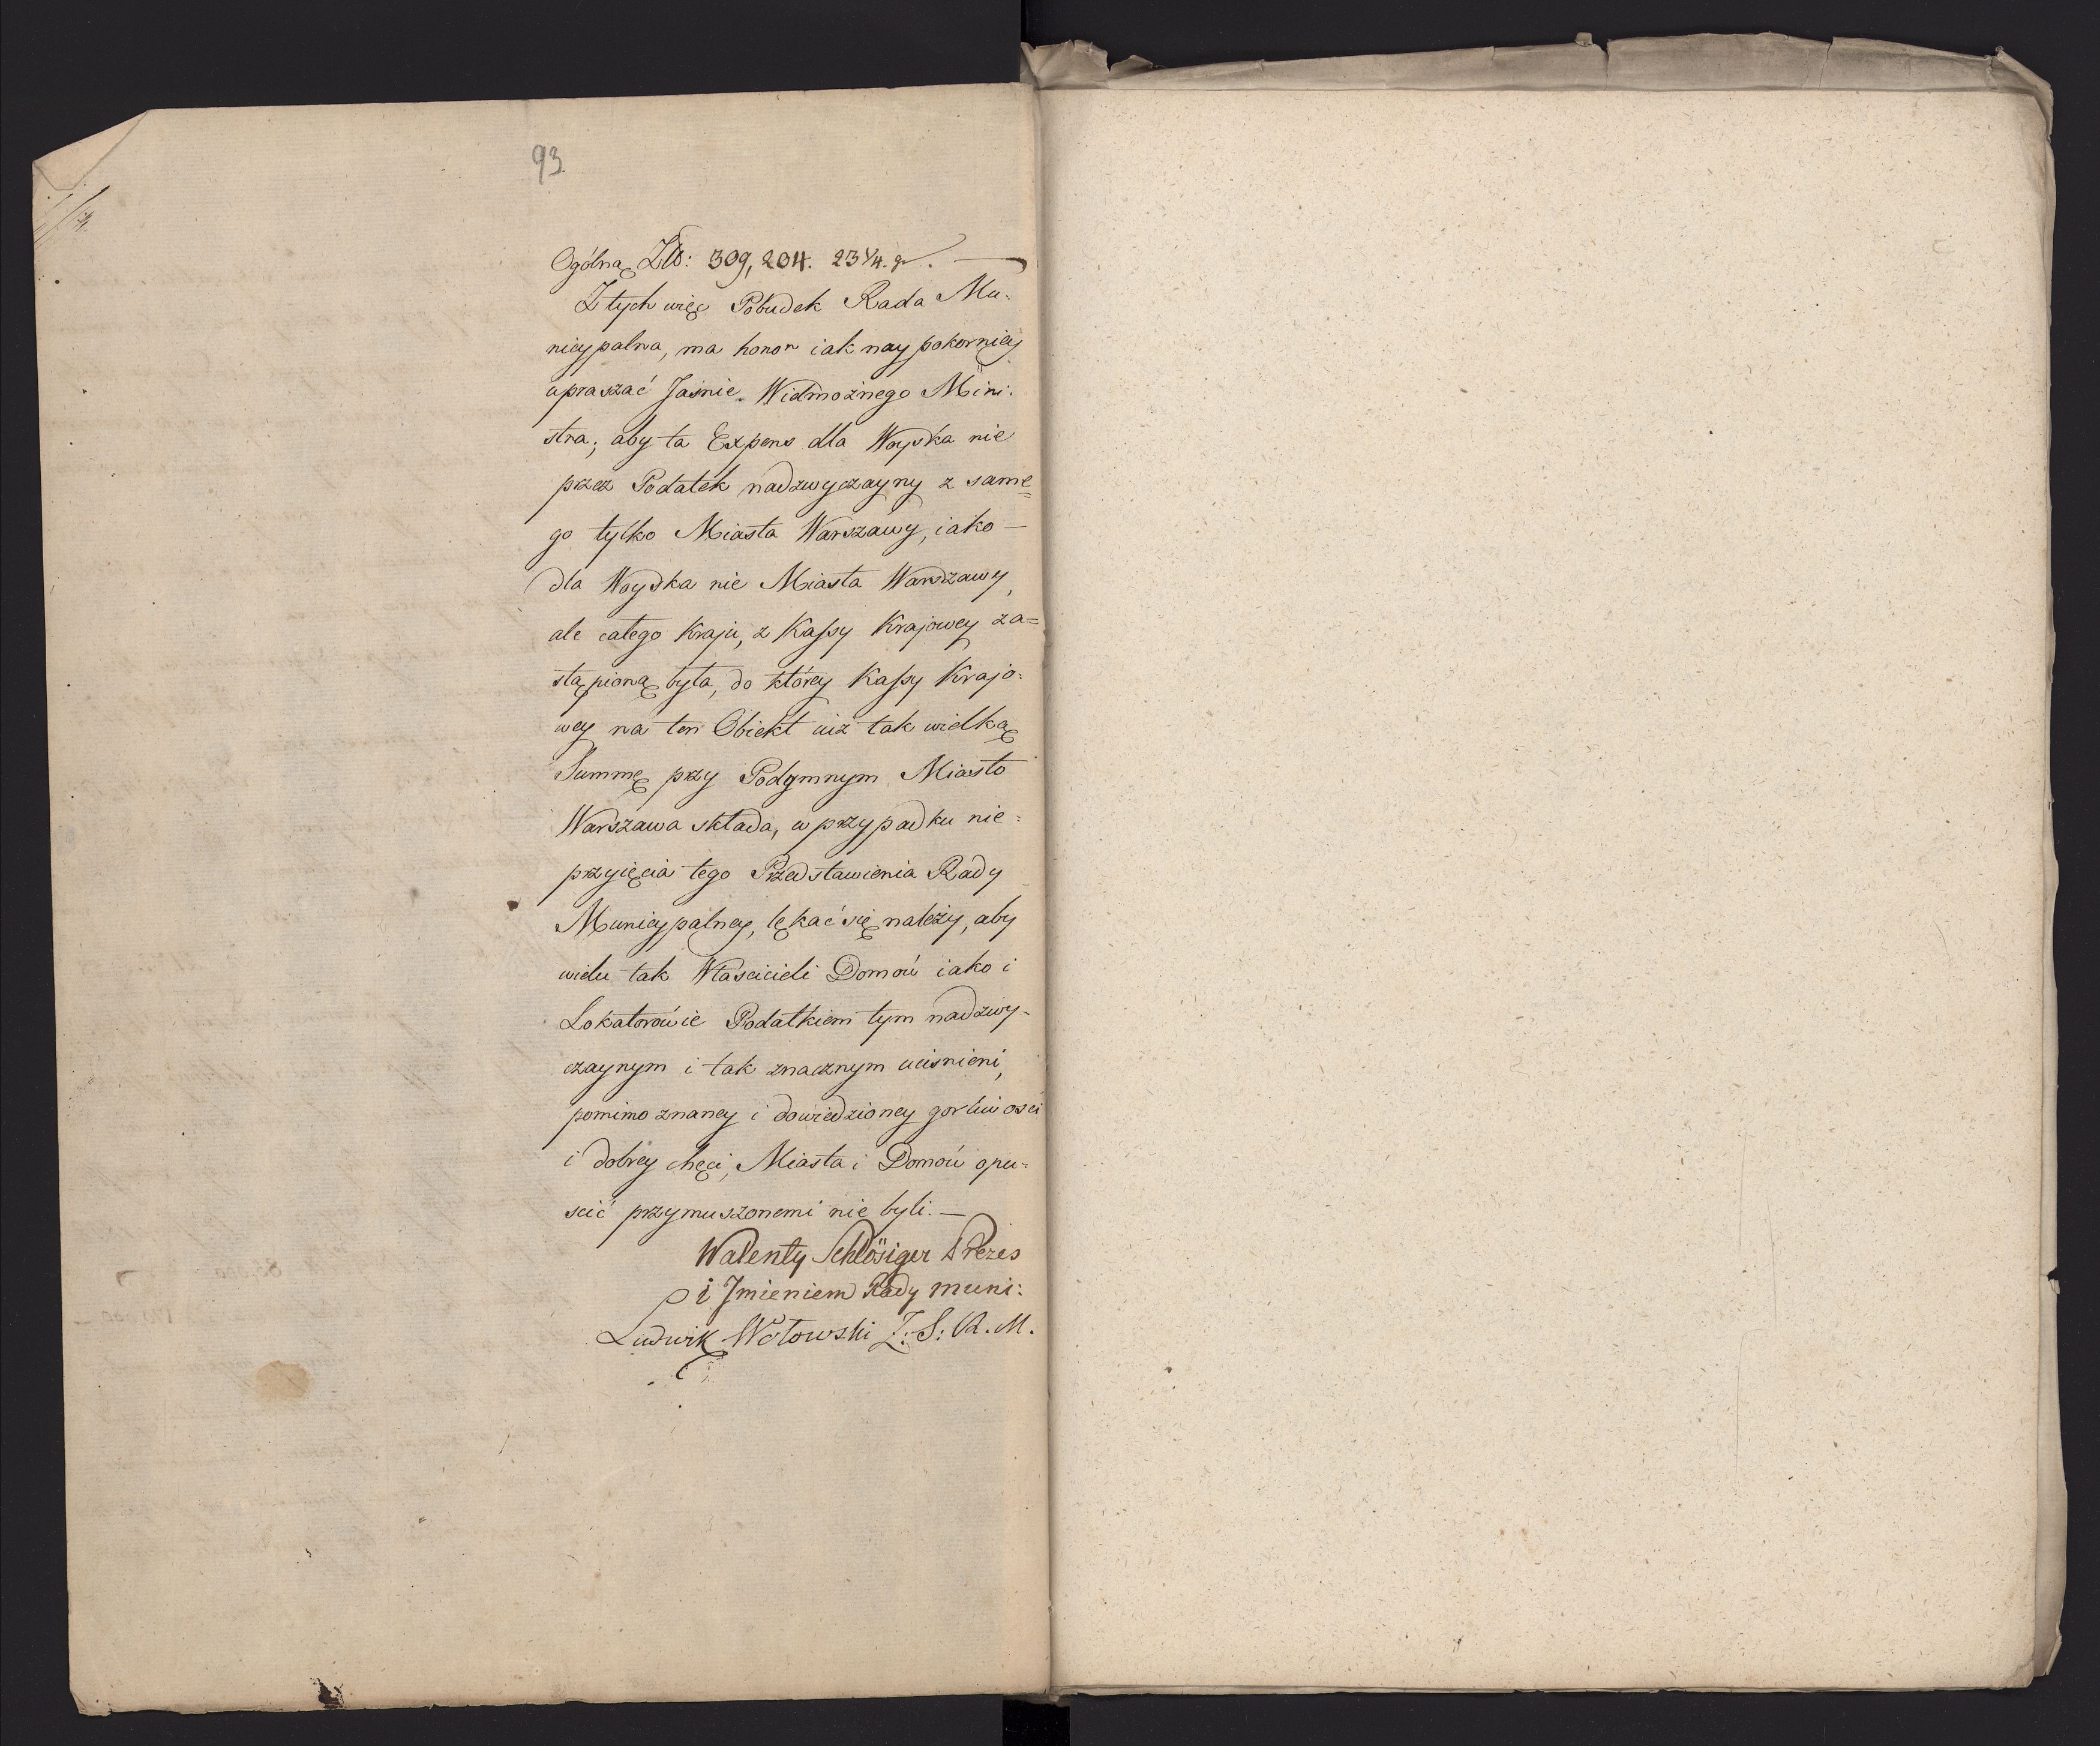 93.
Ogólną Złł: 309,204. 23 1/4. gr. —
Z tych więc Pobudek Rada Mu:
nicypalna, ma honor iak naypokorniey
upraszać Jaśnie Wielmożnego Mini:
stra, aby ta Expens dla Woyska nie
przez Podatek nadzwyczayny z same=
go tylko Miasta Warszawy, iako —
dla Woyska nie Miasta Warszawy,
ale całego Kraju, z Kassy Krajowey za=
stąpioną była, do którey Kassy Krajo:
wey na ten Obiekt iuż tak wielką
Summę przy Podymnym Miasto
Warszawa składa, w przypadku nie=
przyięcia tego Przedstawienia Rady
Municypalney, lękać się należy, aby
wielu tak Właścicieli Domów iako i
Lokatorowie Podatkiem tym nadzwy-
czaynym i tak znacznym uciśnieni,
pomimo znaney i dowiedzioney gorliwości
i dobrey chęci, Miasta i Domów opu=
scić przymuszonemi nie byli. —
Walenty Schlösiger Prezes
i Jmieniem Rady muni:
Ludwik Wołowski Z: S: R. M.